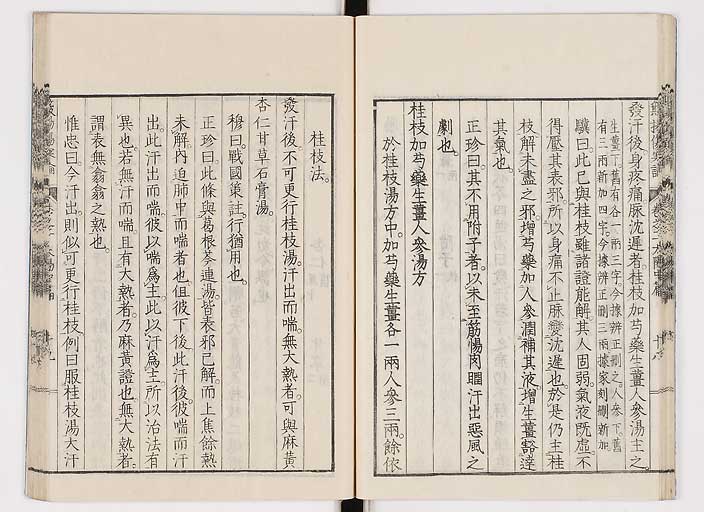 發汗後身疼痛脉沈遲者桂枝加芍藥生薑人參湯主之
生薑下舊有各一兩三字今據辨正刪之人參下舊
有三兩新加四字今據辨正刪三兩據家刻刪新加
驥曰此已與桂枝雖諸證能解其人固弱氣液既虛不
得壓其表邪所以身痛不止脉變沈遲也於是仍主桂
枝解未盡之邪增芍藥加人參潤補其液增生薑豁達
其氣也
正珍曰其不用附子者以未至筋惕肉瞤汗出惡風之
劇也
桂枝加芍藥生薑人參湯方
於桂枝湯方中加芍藥生薑各一兩人參三兩餘依
桂枝法
發汗後不可更行桂枝湯汗出而喘無大熱者可與麻黃
杏仁甘草石膏湯
穆曰戰國策註行猶用也
正珍曰此條與葛根芩連湯皆表邪已解而上焦餘熱
未解內迫肺中而喘者也但彼下後此汗後彼喘而汗
出此汗出而喘彼以喘為主此以汗為主所以治法有
異也若無汗而喘且有大熱者乃麻黃證也無大熱者
謂表無翕翕之熱也
惟忠曰今汗出則似可更行桂枝例曰服桂枝湯大汗